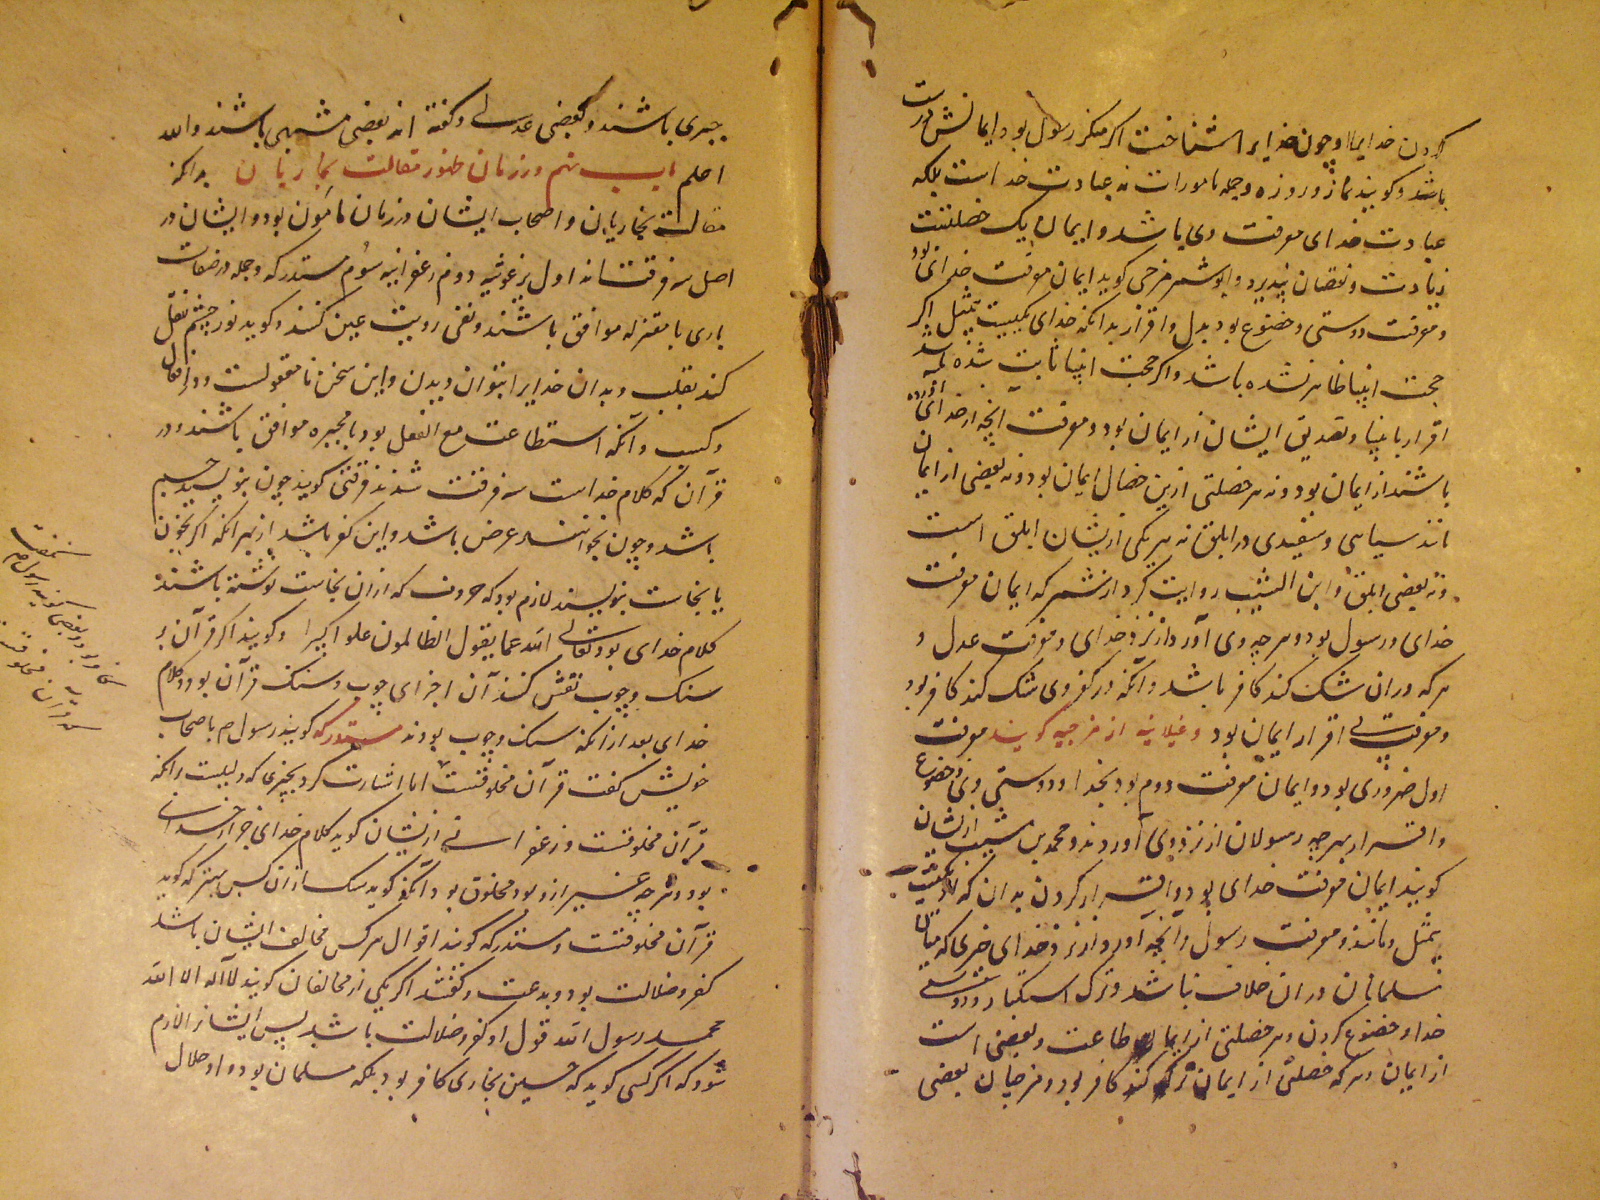 کردن خدایرا و چون خدایرا شناخت اکر منکر رسول بود ایمانش درست
باشد و کویند نماز و روزه و جمله مامورات نه عبادت خداست بلکه
عبادت خدای معرفت وی باشد و ایمان یک خصلتست
زیادت و نقصان نپذیرد و ابو شمر مرجی کوید ایمان معرفت خدای بود
و معرفت دوستی و خضوع بود بدل و اقرار بدانکه خدای یکیست بیمثل اکر
حجت انبیا ظاهر نشده باشد و اکر حجت انبیا ثابت شده باشد
اقرار بانبیا و تصدیق ایشان از ایمان بود و معرفت آنچه از خدای آورده
باشند از ایمان بود و نه هر خصلتی ازین خصال ایمان بود و نه بعضی از ایمان
مانند سیاهی و سفیدی در ابلق نه هر یکی ازیشان ابلق است
و نه بعضی ابلق و ابن الشبیب روایت کرد از شمر که ایمان معرفت
خدای و رسول بود و هر چه وی آورد از نزد خدای و معرفت عدل و
هر که در ان شک کند کافر باشد و آنکه در کفر وی شک کند کافر بود
و معرفت بی اقرار ایمان بود و غیلانیه از مرجیه کویند معرفت
اول ضروری بود و ایمان معرفت دوم بود بخدا و دوستی وی و خضوع
و اقرار بهر چه رسولان از نزد وی آوردند و محمد بن شبیب ازیشان
کویند ایمان معرفت خدای بود و اقرار کردن بدان که او یکیست
بیمثل و مانند و معرفت رسول و آنچه آورد از نزد خدای چیزی که میان
مسلمانان در ان خلاف نباشد و ترک استکبار و دوستی
خدا و خضوع کردن و هر خصلتی از ایمان طاعت و بعضی است
از ایمان و هر که خصلتی از ایمان ترک کند کافر بود و مرجیان بعضی
جبری باشند و بعضی عدلی و کفته اند بعضی مشبهی باشند والله
اعلم باب نهم در زمان ظهور مقالت نجاریان بدانکه
مقالت نجاریان و اصحاب ایشان در زمان مامون بود و ایشان در
اصل سه فرقت‌اند اول برغوثیه دوم زعفرانیه سوم مستدرکه و جمله در صفات
باری با معتزله موافق باشند و نفی رویت عین کنند و کوید نور چشم نقل
کند بقلب و بدان خدایرا بتوان دیدن و این سخن نا معقولست و در افعال
و کسب و آنکه استطاعت مع الفعل بود با مجبره موافق باشند و در
قرآن که کلام خداست سه فرقت شدند فرقتی کویند چون بنویسند جسم
باشد و چون بخوانند عرض باشد و این کفر باشد از بهر آنکه اکر بخون
یا نجاست بنویسند لازم بود که حروف که از ان نجاست نوشته باشند
کلام خدای بود تعالی الله عما یقول الظالمون علوا کبیرا و کویند اکر قرآن بر
سنک و چوب نقش کنند آن اجزای چوب و سنک قرآن بود و کلام
خدای بعد از انکه سنک و چوب بودند مستدرکه کویند رسول ص باصحاب
خویش کفت قرآن مخلوقست اما اشارت کرد بچیزها که دلیلست بر انکه
قرآن مخلوقست و زعفرانی ازیشان کوید کلام خدای جز از خدای
بود و هر چه غیر ازو بود مخلوق بود و آنکه کوید سک از ان کس بهتر که کوید
قرآن مخلوقست و مستدرکه کویند اقوال هر کس مخالف ایشان باشد
کفر و ضلالت بود و بدعت و کفتند اکر یکی از مخالفان کویند لا اله الا الله
محمد رسول الله قول او کفر و ضلالت باشد پس ایشانرا لازم
شود که اکر کسی کوید که حسین نجاری کافر بود بلکه مسلمان بود و او حلال